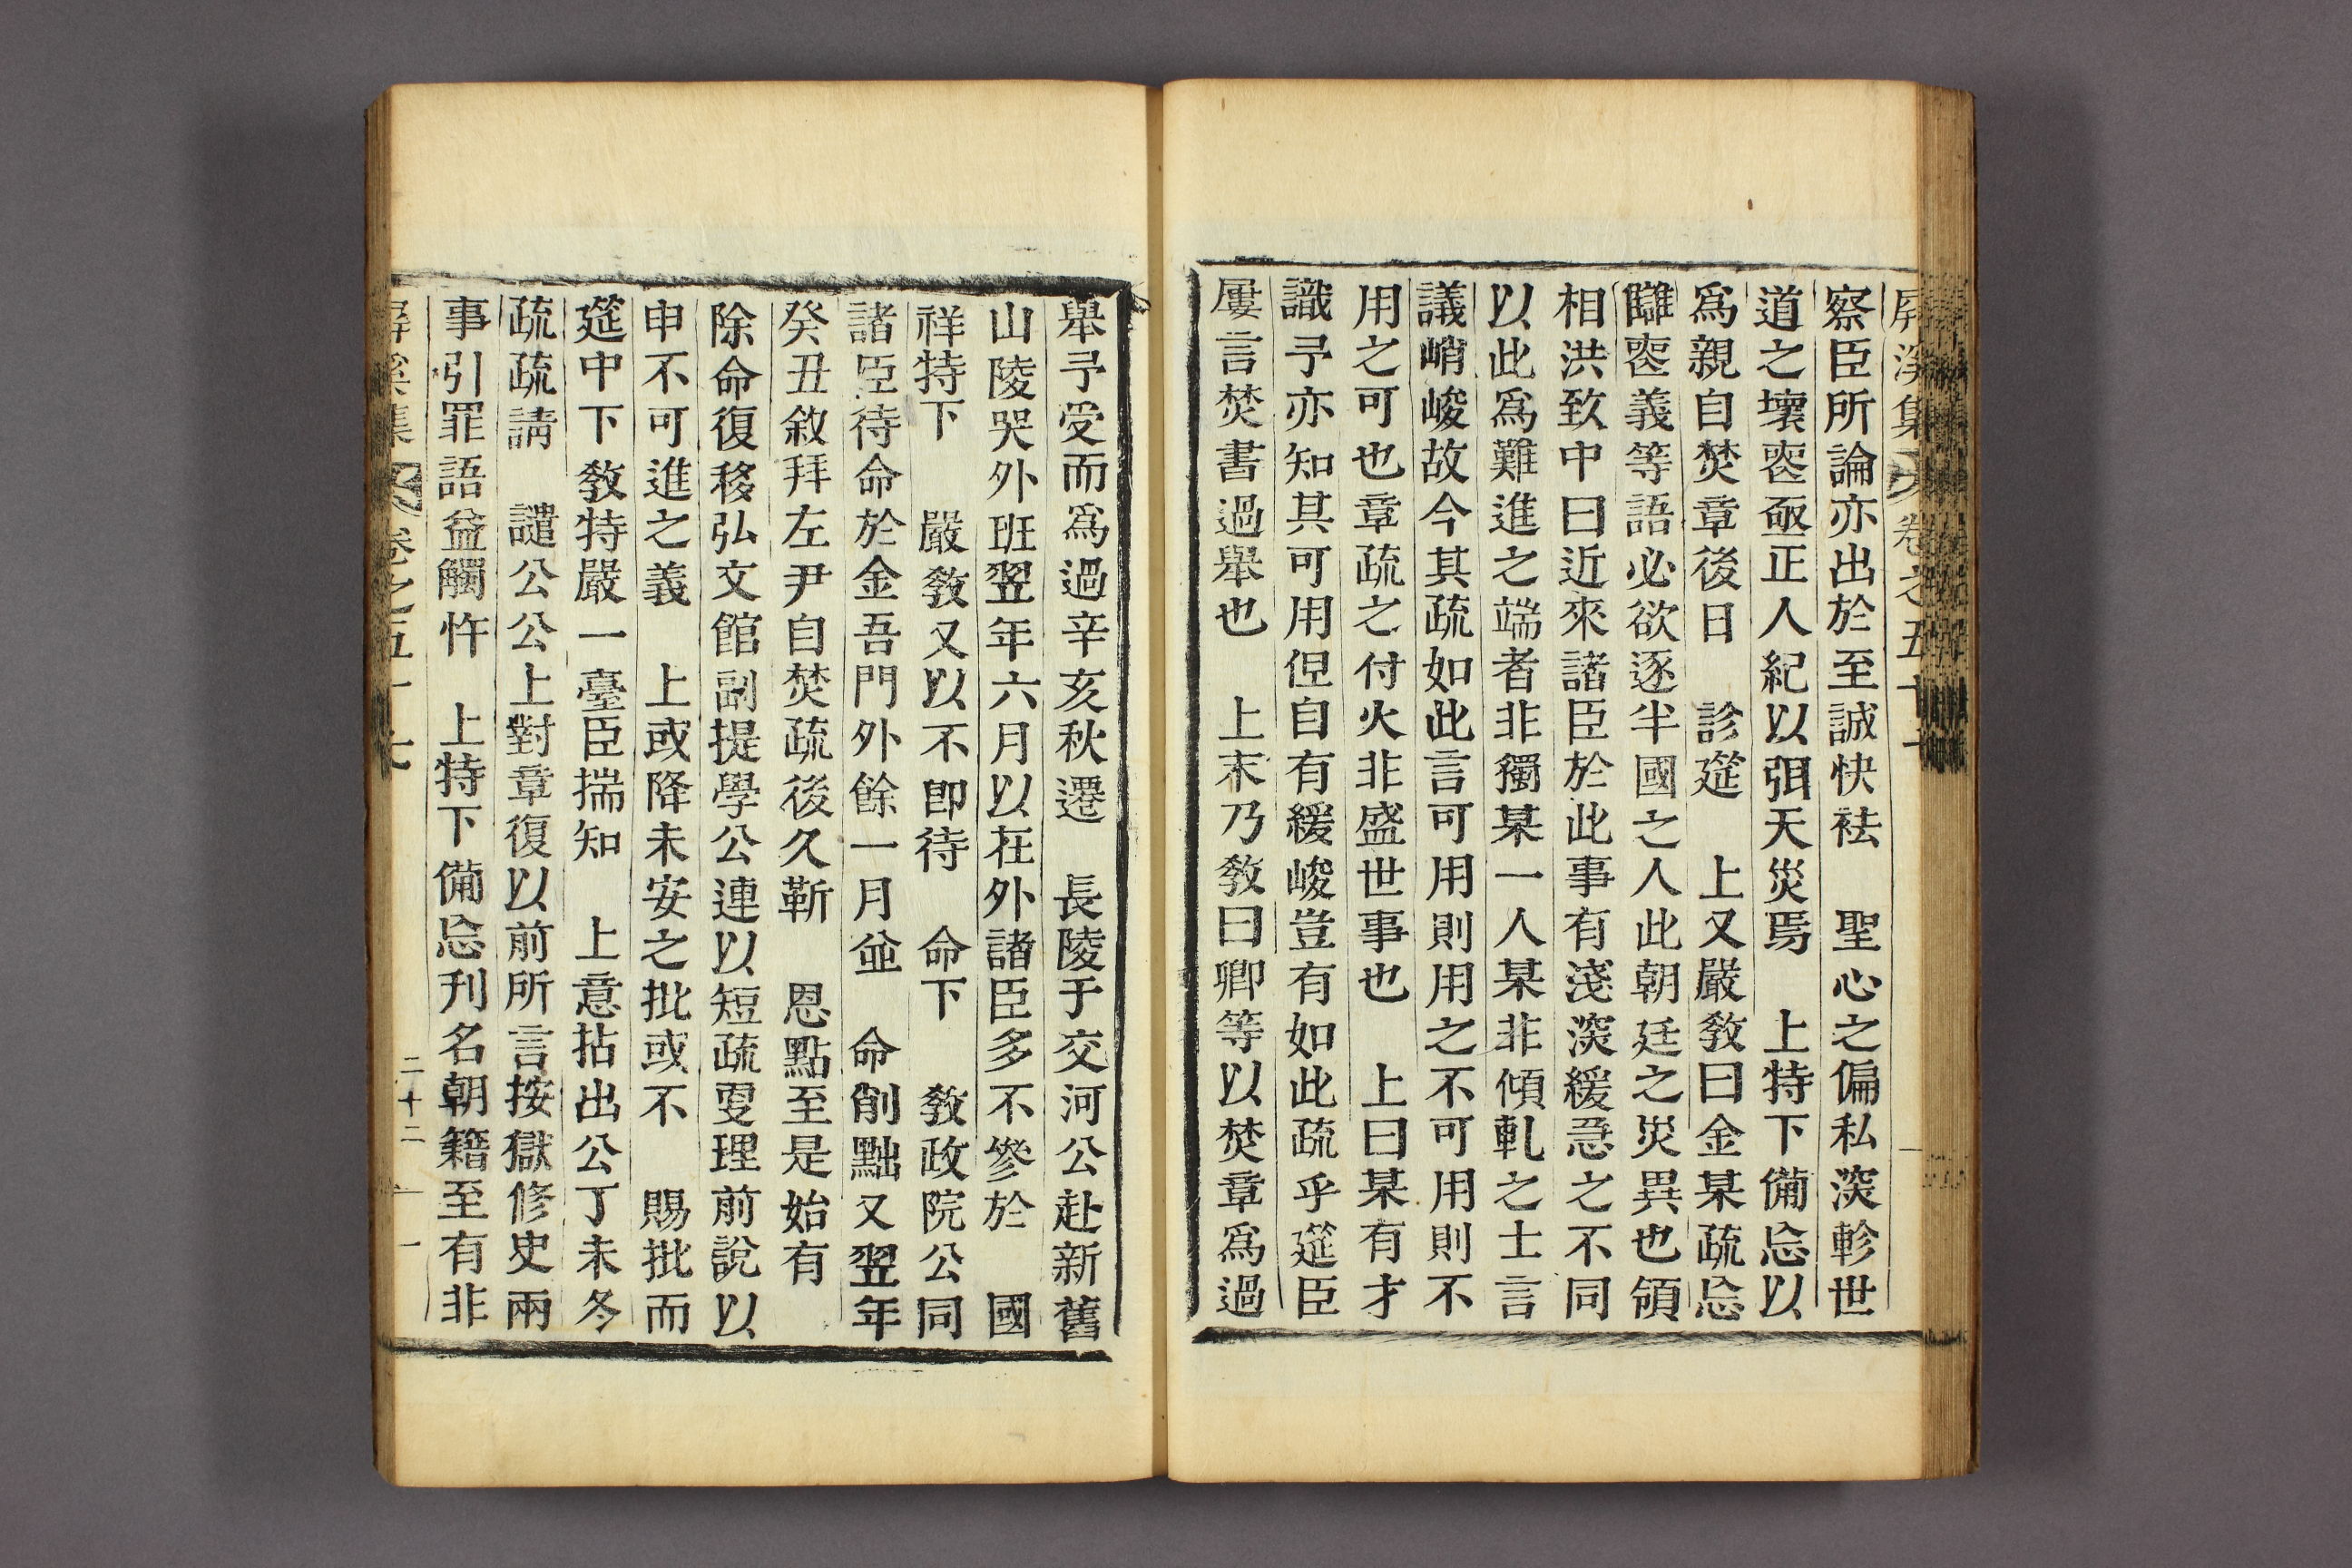 屛溪集 卷之五十
察臣所論亦出於至誠快袪 聖心之偏私深軫世
道之壞喪亟正人紀以弭天災焉 上特下備忘以
爲親自焚章後日 診筵 上又嚴敎曰金某疏忘
讎喪義等語必欲逐半國之人此朝廷之災異也領
相洪致中曰近來諸臣於此事有淺深緩急之不同
以此爲難進之端者非獨某一人某非傾軋之士言
議峭峻故今其疏如此言可用則用之不可用則不
用之可也章疏之付火非盛世事也 上曰某有才
識予亦知其可用但自有緩峻豈有如此疏乎筵臣
屢言焚書過擧也 上末乃敎曰卿等以焚章爲過
擧予受而爲過辛亥秋遷 長陵于交河公赴新舊
山陵哭外班翌年六月以在外諸臣多不參於 國
祥特下 嚴敎又以不卽待 命下 敎政院公同
諸臣待命於金吾門外餘一月並 命削黜又翌年
癸丑敘拜左尹自焚疏後久靳 恩點至是始有
除命復移弘文館副提學公連以短疏更理前說以
申不可進之義 上或降未安之批或不 賜批而
筵中下敎特嚴一臺臣揣知 上意拈出公丁未冬
疏疏請 譴公公上對章復以前所言按獄修史兩
事引罪語益觸忤 上特下備忘刊名朝籍至有非
屛溪集 卷之五十 二十二